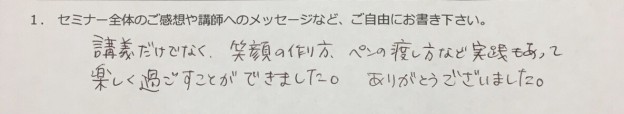 1. セミナー全体のご感想や講師へのメッセージなど、ご自由にお書き下さい。
講義だけでなく、笑顔の作り方、ペンの渡し方など実践もあって
楽しく過ごすことができました。 ありがとうございました。